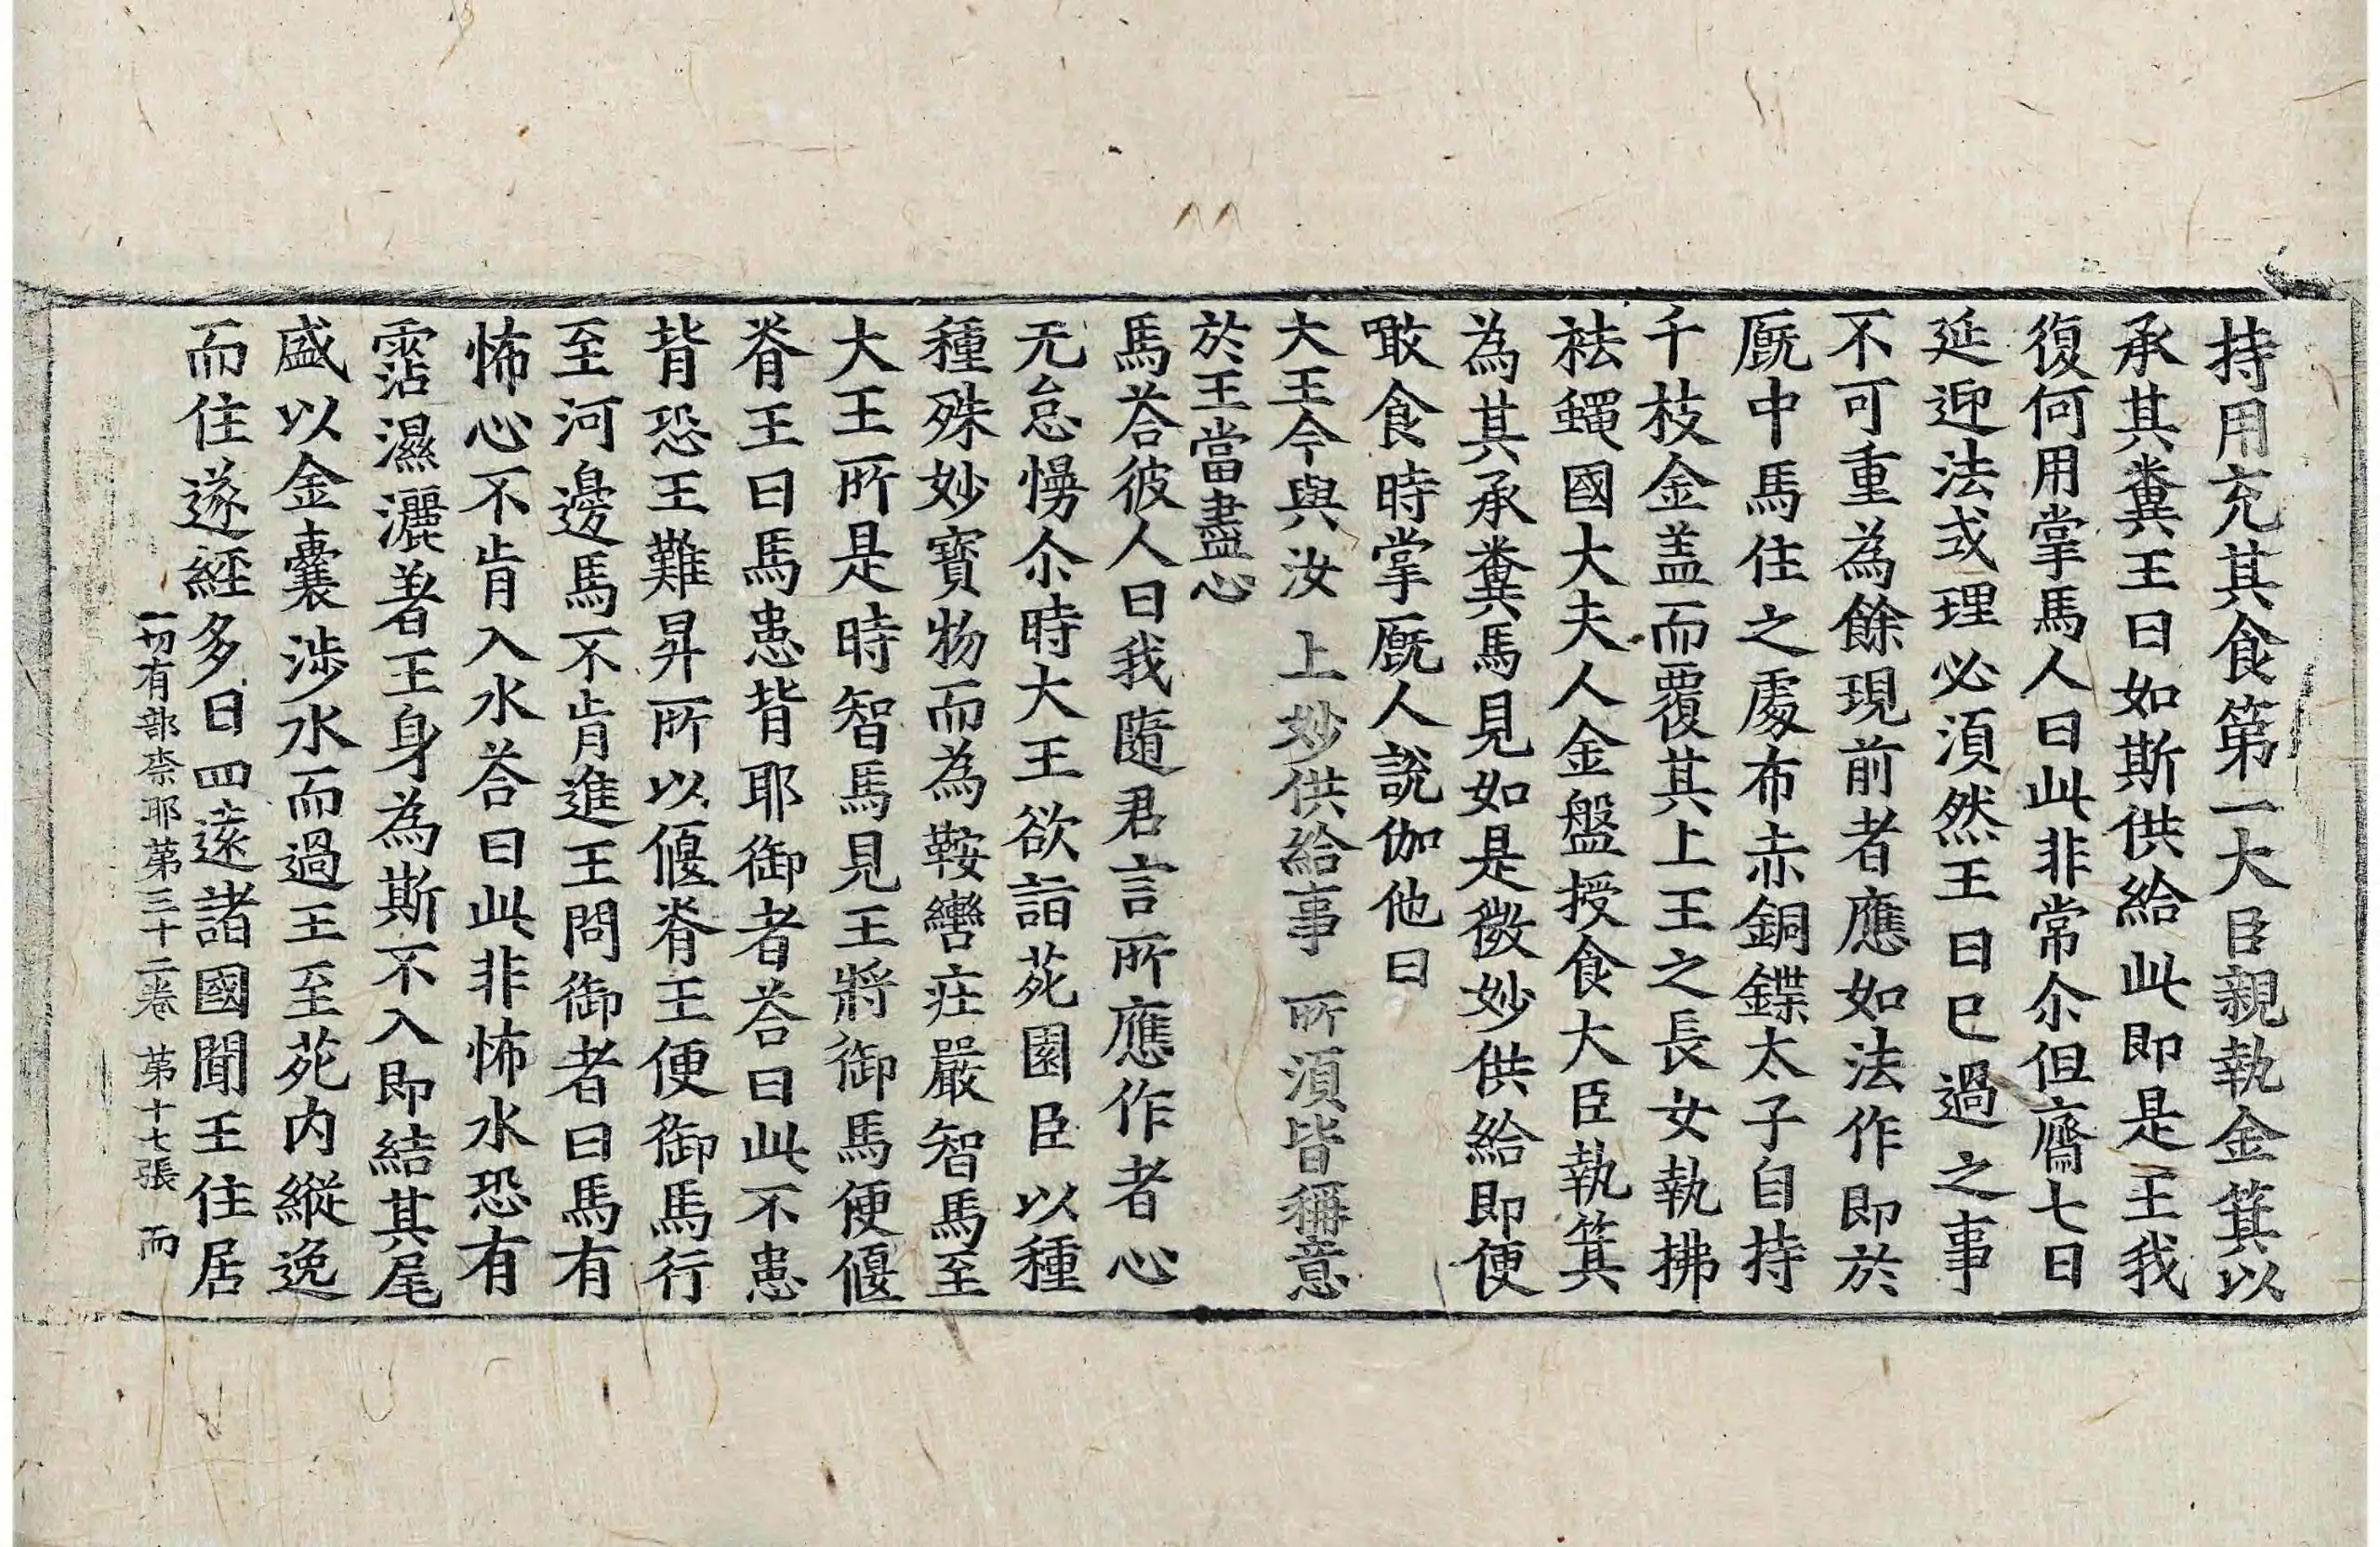 持用充其食第一大臣親執金箕以
承其糞王曰如斯供給此即是王我
復何用掌馬人曰此非常尒但齋七日
延迎法式理必須然王曰已過之事
不可重為餘現前者應如法作即於
廐中馬住之處布赤銅鍱太子自持
千枝金盖而覆其上王之長女執拂
袪蠅國大夫人金盤授食大臣執箕
為其承糞馬見如是微妙供給即便
噉食時掌廐人說伽他曰
大王今與汝 上妙供給事 所須皆稱意
於王當盡心
馬荅彼人曰我隨君言所應作者心
无怠慢尒時大王欲詣苑園臣以種
種殊妙寶物而為鞍轡莊嚴智馬至
大王所是時智馬見王將御馬便偃
脊王曰馬患背耶御者荅曰此不患
背恐王難昇所以偃脊王便御馬行
至河邊馬不肯進王問御者曰馬有
怖心不肯入水荅曰此非怖水恐有
霑濕灑著王身為斯不入即結其尾
盛以金囊涉水而過王至苑内縱逸
而住遂經多日四遠諸國聞王住居
一切有部柰耶第三十二卷 第十七張 而